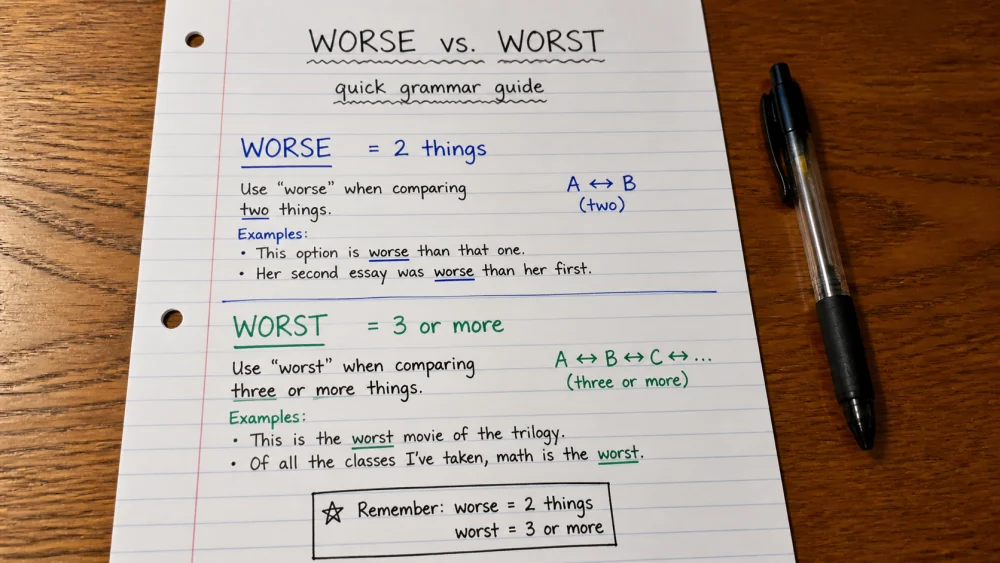 WORSE vs. WORST
quick grammar guide
WORSE = 2 things
Use “worse” when comparing
two things.
A ↔ B
(two)
Examples:
• This option is worse than that one.
• Her second essay was worse than her first.
WORST = 3 or more
Use “worst” when comparing
three or more things.
A ↔ B ↔ C ↔ ...
(three or more)
Examples:
• This is the worst movie of the trilogy.
• Of all the classes I’ve taken, math is the worst.
☆ Remember: worse = 2 things
worst = 3 or more